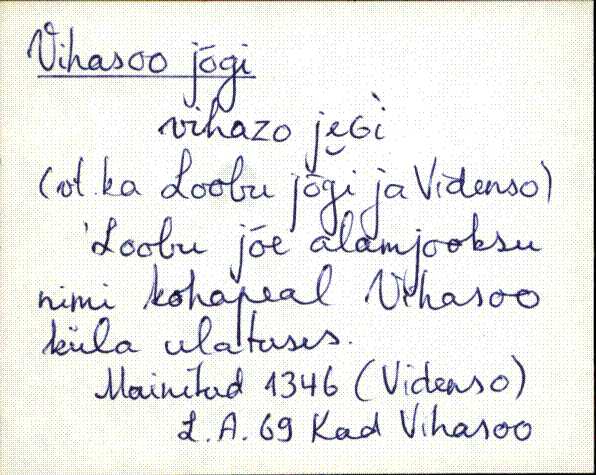 Vihasoo jõgi
vihazo je̮ɢì
(vt. ka Loobu jõgi ja Videnso)
'Loobu jõe alamjooksu
nimi kohapeal Vihasoo
küla ulatuses.
Mainitud 1346 (Videnso)
L.A. 69 Kad Vihasoo